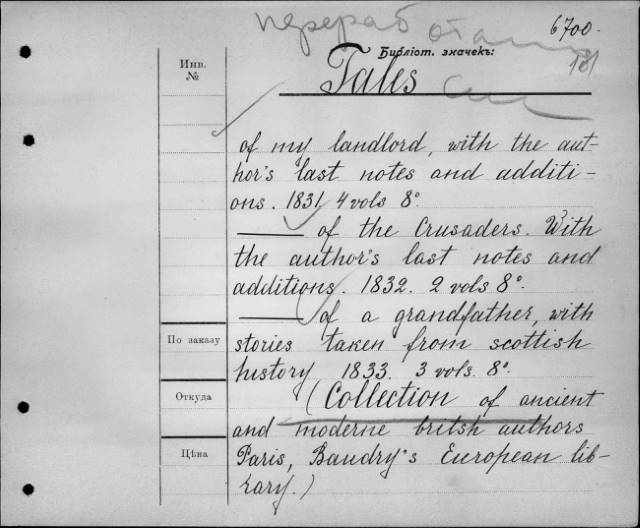 переработан
6700.
181
Библіот. значекъ:
Инв.
№
Tales
of my landlord, with the aut-
hor's last notes and additi-
ons. 1831. 4 vols 8°.
——— of the Crusaders. With
the author's last notes and
additions. 1832. 2 vols 8°.
——— of a grandfather, with
stories taken from scottish
history 1833. 3 vols. 8°.
(Collection of ancient
and moderne britsh authors
Paris, Baudry's European lib-
rary.)
По заказу
Откуда
Цѣна